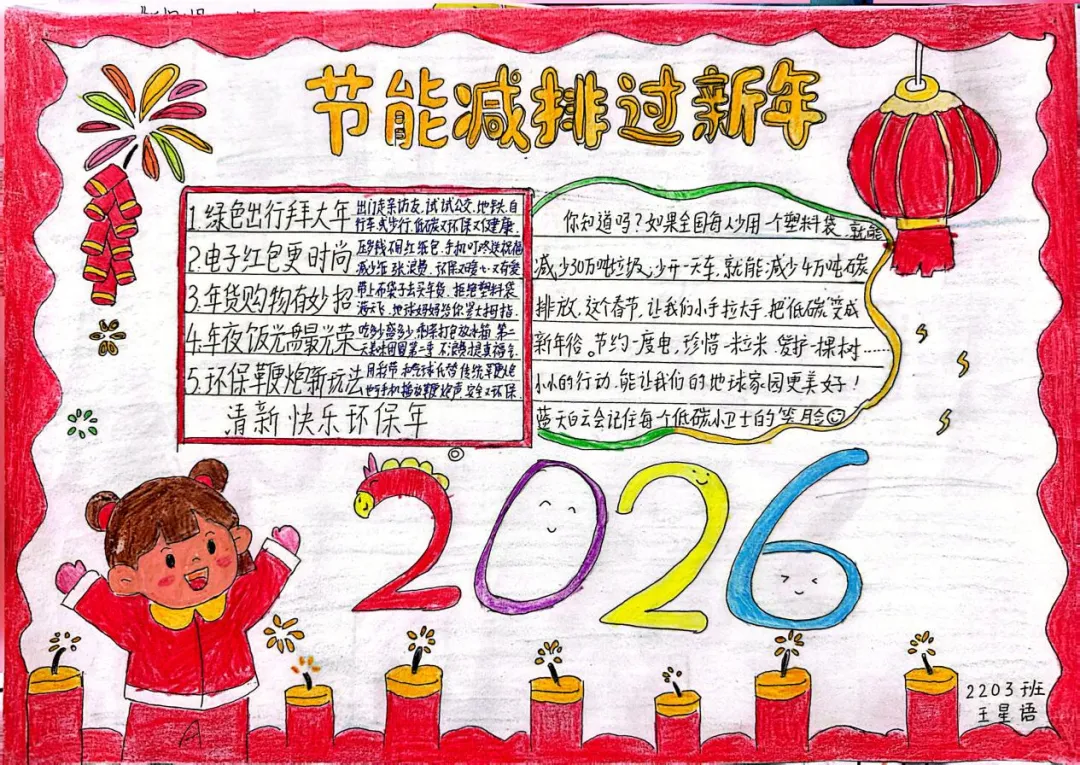 节能减排过新年
1.绿色出行拜大年 出门走亲访友,试试公交、地铁、自
行车或步行,低碳又环保又健康.
2.电子红包更时尚 压岁钱不用红纸包,手机叮咚送祝福
减少纸张浪费,环保又暖心又有爱
3.年货购物有妙招 带上布袋子去买年货,拒绝塑料袋
满天飞,地球妈妈给你竖大拇指.
4.年夜饭光盘最光荣 吃多少盛多少,剩菜打包放冰箱,第二
天美味团圆第二季,不浪费才是真得
5.环保鞭炮新玩法 用彩带
电子手机播放鞭炮声,安全又环保.
清新快乐环保年
你知道吗?如果全国每人少用一个塑料袋,就能
减少30万吨垃圾,少开一天车,就能减少4万吨碳
排放.这个春节,让我们小手拉大手,把"低碳"变成
新年俗。节约一度电,珍惜一粒米、爱护一棵树......
小小的行动,能让我们的地球家园更美好!
蓝天白云会记住每个低碳小卫士的笑脸
2026
2203班
王星语
A